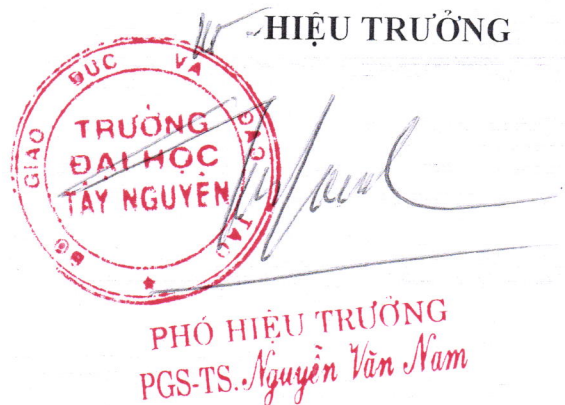 HIỆU TRƯỞNG
BỘ GIÁO DỤC VÀ ĐÀO TẠO
TRƯỜNG
ĐẠI HỌC
TÂY NGUYÊN
PHÓ HIỆU TRƯỞNG
PGS-TS. Nguyễn Văn Nam